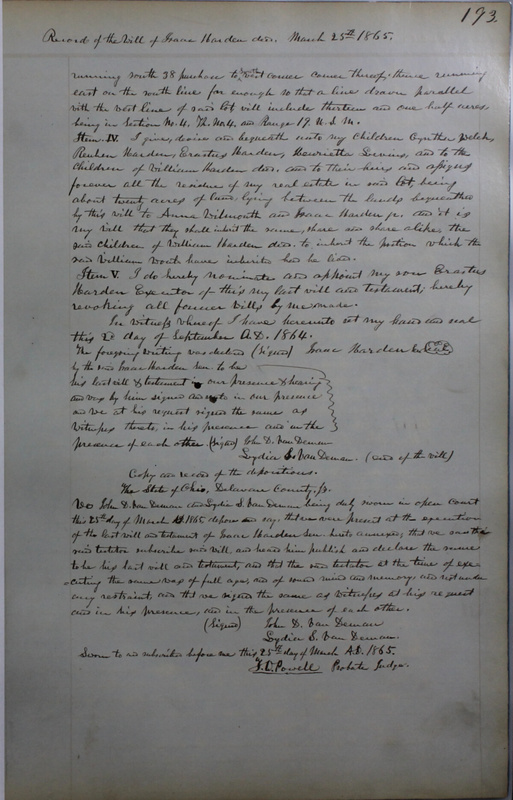 193
Record of the Will of Isaac Harden decd. March 25th 1865.
running south 38 purchase to south west corner corner thereof; thence running
east on the south line far enough so that a line drawn parallel
with the west line of said lot will include thirteen and one half acres
being in Section No. 4. Tp. No. 4. and Range 19. U. S. M.
Item IV. I give, devise and bequeath unto my Children Cynthia Welch,
Reuben Harden, Erastus Harden, Henrietta and to the
Children of William Harden decd. and to their heirs and assigns
forever all the residue of my real estate in said lot, being
about twenty acres of land lying between the lands bequeathed
by this will to Anna Wilmouth and Isaac Harden jr. and it is
my will that they shall inherit the same, share and share alike, the
said children of William Harden decd. to inherit the portion which the
said William would have inherited had he lived.
Item V. I do hereby nominate and appoint my son Erastus
Harden Executor of this my last will and testament; hereby
revoking all former wills by me made.
In Witness whereof I have hereunto set my hand and seal
this day of September A.D. 1864.
The foregoing writing was declared (Signed) Isaac Harden Seal
by the said Isaac Harden Sen. to be
his last will & testament in our presence & hearing
and was by him signed and in our presence
and we at his request signed the same as
witnesses thereto, in his presence and in the
presence of each other. (Signed) John D. Van Deman
Lydia S. Van Deman. (end of the will)
Copy and record of the depositions.
The State of Ohio, Delaware County, ss.
We John D. Van Deman and Lydia S. Van Deman being duly sworn in open court
this 25th day of March AD. 1865 depose and say that we were present at the execution
of the last will and testament of Isaac Harden Sen. hereto annexed; that we saw the
said testator subscribe said will, and heard him publish and declare the same
to be his last will and testament, and that the said testator at the time of exe
cuting the same was of full age, and of sound mind and memory, and not under
any restraint, and that we signed the same as witnesses at his request
and in his presence, and in the presence of each other.
(Signed) John D. Van Deman
Lydia S. Van Deman.
Sworn to and subscribed before me this 25th day of March A.D. 1865.
T. C. Powell Probate Judge.